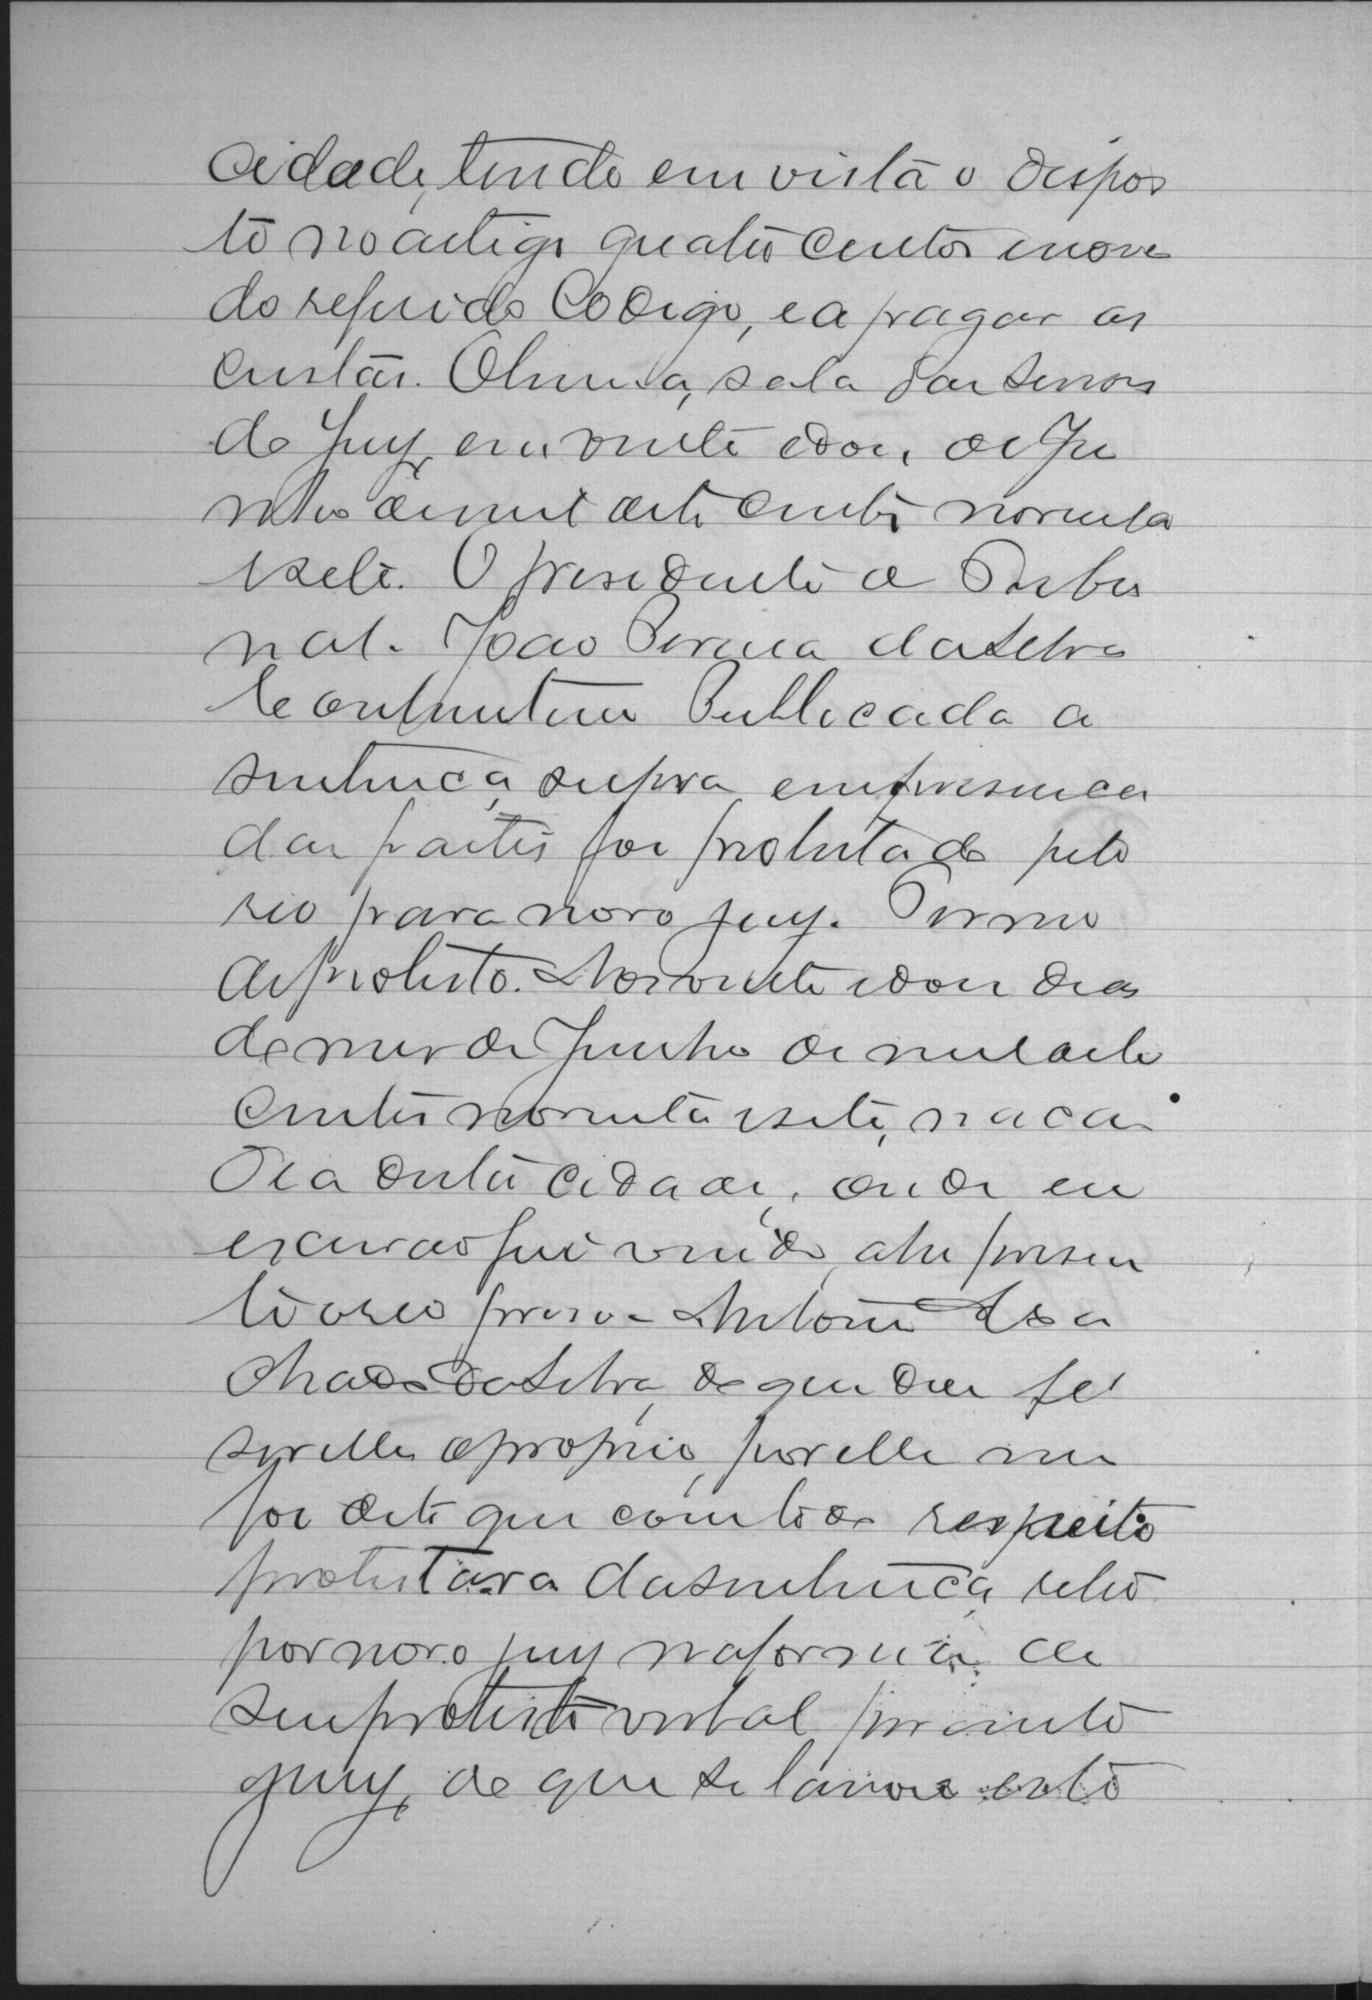 cidade, tendo em vista o dispos
to no artigo quatro centos e nove
do referido Codigo, e a pagar as
custas. sala das sessoes
do jury, em vinte e dois de Ju
nho de mil oito centos noventa
e sete. O presidente do Tribu
nal. João Pereira da Silva
Publicada a
sentença supra em presença
das partes foi protestado pelo
reo para novo jury. Termo
de protesto. Aos vinte e dois dias
do mez de Junho de mil oito
centos noventa e sete, na ca
deia desta cidade, onde eu
escrivão fui vindo, ahi presen
te o reo preso Antonio
da Silva, do que dou fé
ser elle o proprio, por elle me
foi dito que com todo respeito
protestava da sentença
por novo jury na forma de
seu protesto verbal perante o
jury, do que se lavrou este